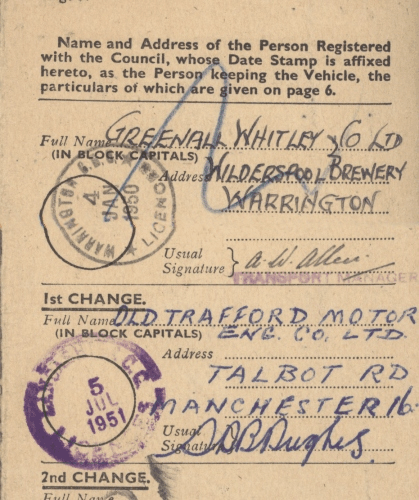 Name and Address of the Person Registered
with the Council, whose Date Stamp is affixed
hereto, as the Person keeping the Vehicle, the
particulars of which are given on page 6.
Full Name GREENALL WHITLEY & Co LTD
(IN BLOCK CAPITALS)
Address WILDERSPOOL BREWERY
WARRINGTON
WARRINGTON
4
JAN
1950
Usual
Signature } A. W. Allen
TRANSPORT MANAGER
1st CHANGE.
Full Name OLD TRAFFORD MOTOR
(IN BLOCK CAPITALS) ENG. CO. LTD.
Address
TALBOT RD
MANCHESTER 16.
5
JUL
1951
Usual
Signature
2nd CHANGE.
Full Name